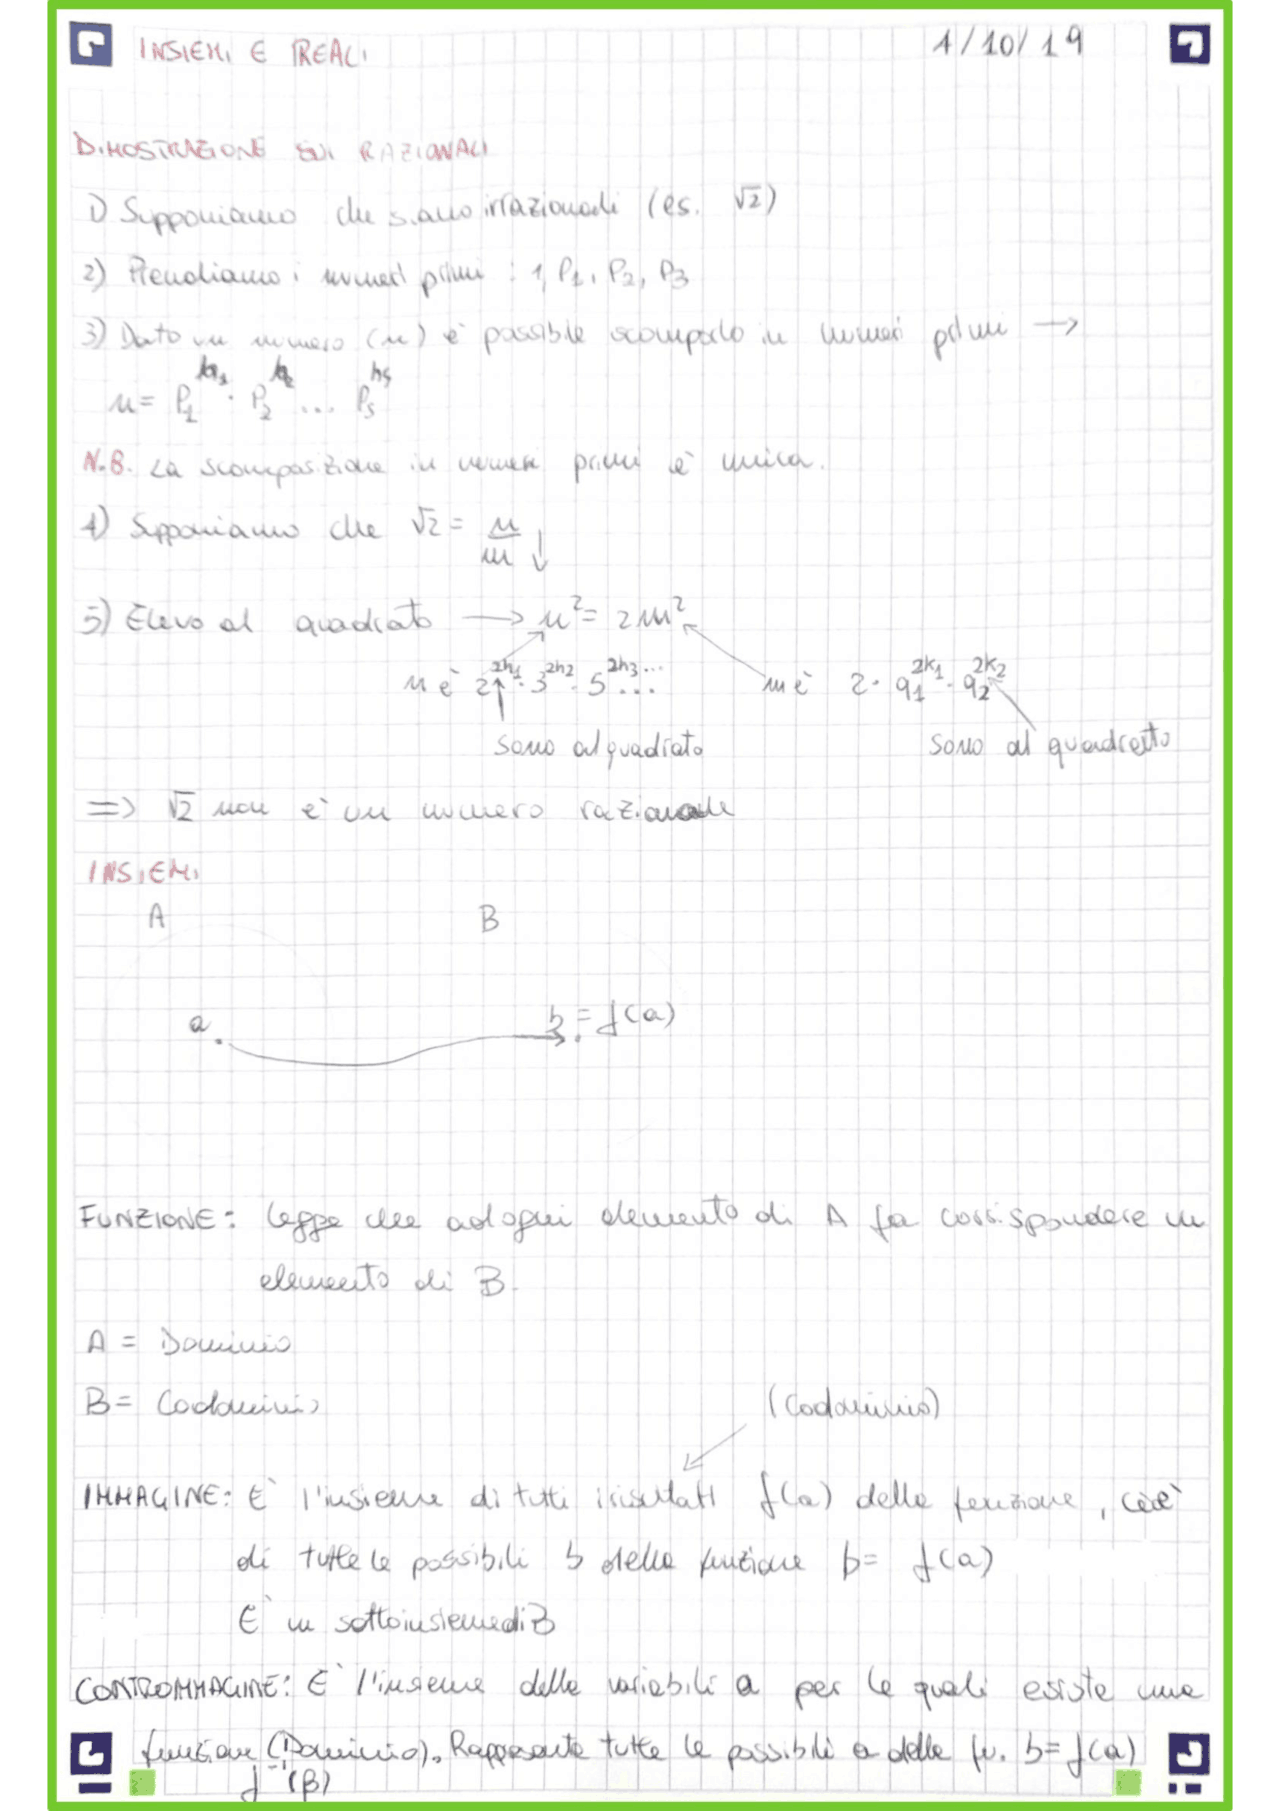 INSIEMI E REALI
1/10/19
DIMOSTRAZIONE SUI RAZIONALI
1) Supponiamo che siano irrazionali (es. √2)
2) Prendiamo i numeri primi : 1, P₁, P₂, P₃
3) Dato un numero (n) è possibile scomporlo in numeri primi →
n = P₁^h₁ · P₂^h₂ ... P₅^h₅
N.B. La scomposizione in numeri primi è unica.
4) Supponiamo che √2 = n/m ↓
5) Elevo al quadrato → n² = 2m²
n è 2^2h₁ · 3^2h₂ · 5^2h₃... ... m è 2 · q₁^2k₁ · q₂^2k₂
sono al quadrato sono al quadrato
=> √2 non è un numero razionale
INSIEMI
A B
a b = f(a)
FUNZIONE: legge che ad ogni elemento di A fa corrispondere un
elemento di B.
A = Dominio
B = Codominio (Codominio)
IMMAGINE: E' l'insieme di tutti i risultati f(a) della funzione, cioè
di tutte le possibili b della funzione b = f(a)
E' un sottoinsieme di B
CONTROIMMAGINE: E' l'insieme delle variabili a per le quali esiste una
funzione (Dominio). Rappresenta tutte le possibili a della fu. b = f(a)
f⁻¹(β)